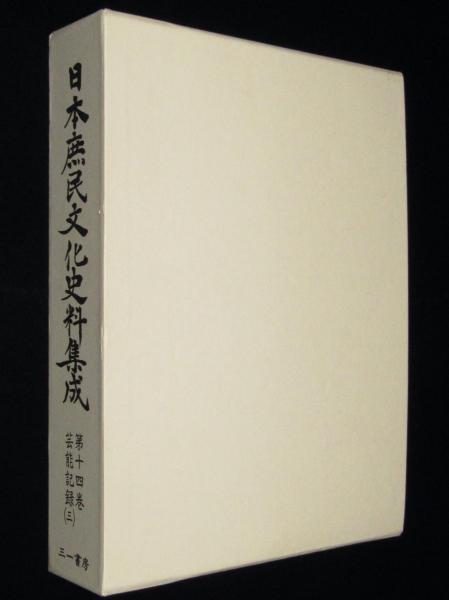 日本庶民文化史料集成
第十四巻
芸能記録(三)
三一書房